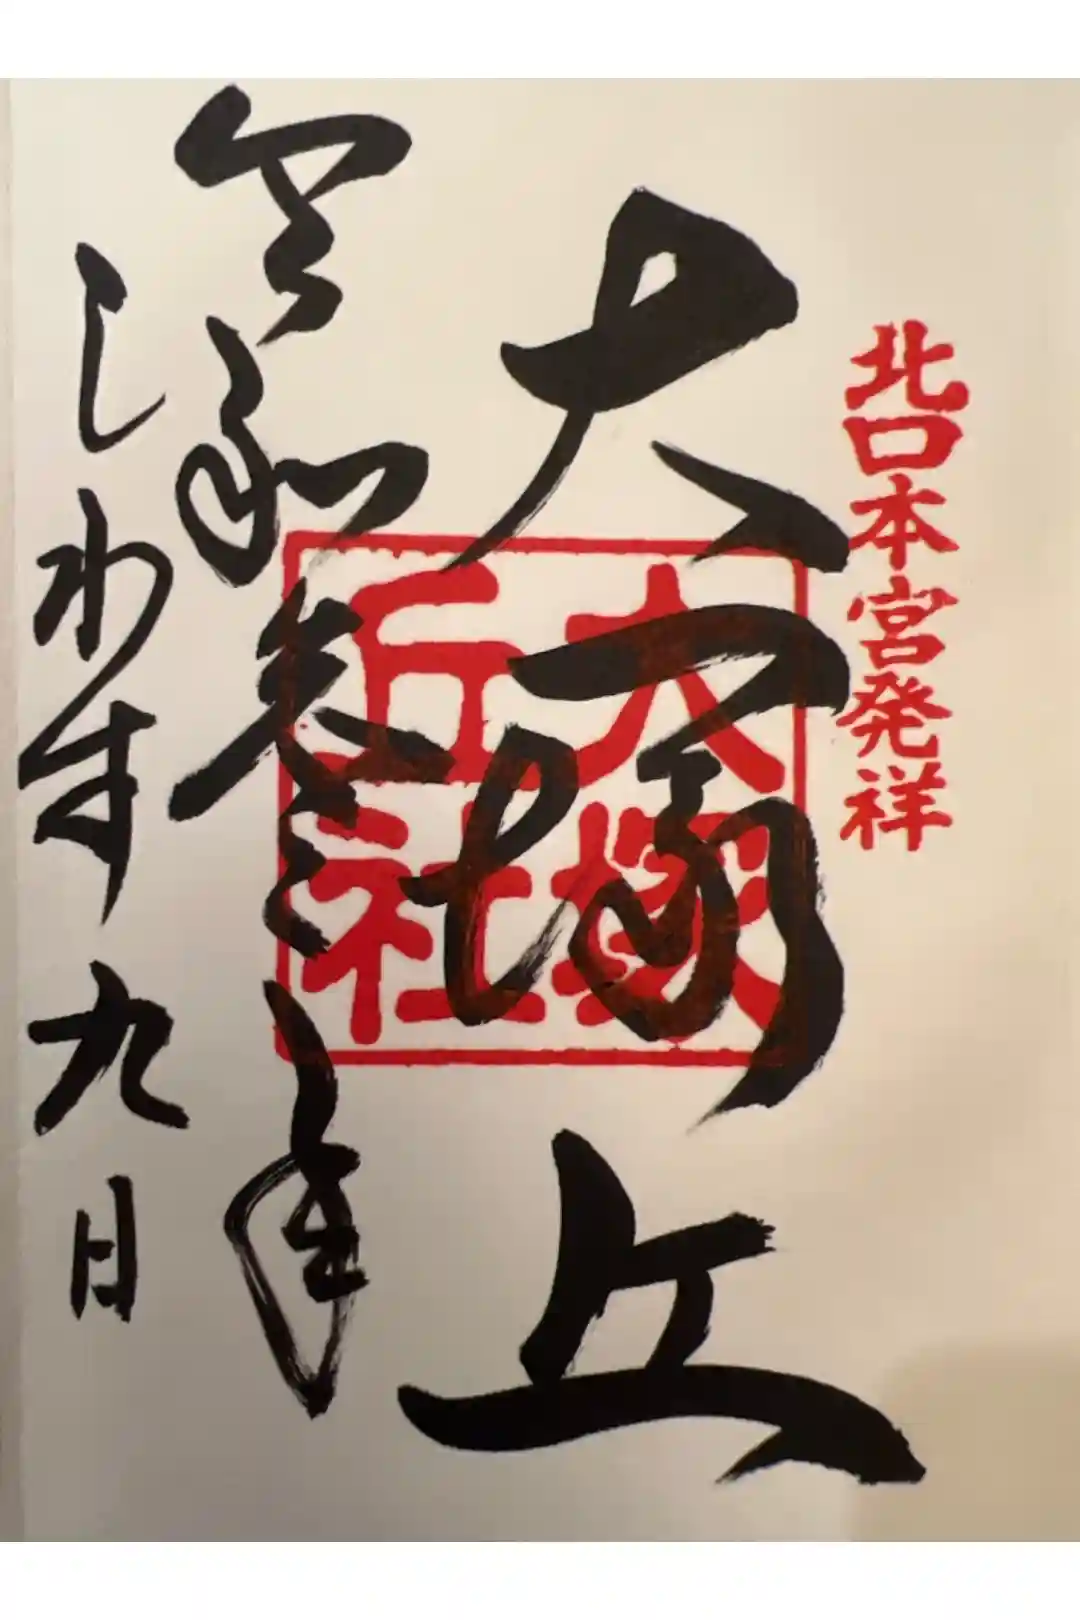 北口本宮発祥
大塚丘
大塚
丘社
令和参年
しわす九日